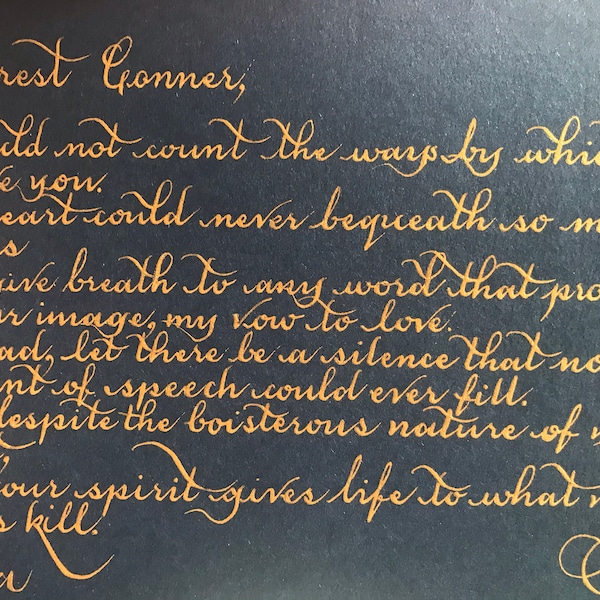 rest Gonner,
uld not count the ways by whic
e you.
eart could never bequeath so m
s
give breath to any word that pro
ur image, my vow to love.
ad, let there be a silence that no
nt of speech could ever fill.
despite the boisterous nature of
our spirit gives life to what
s kill.